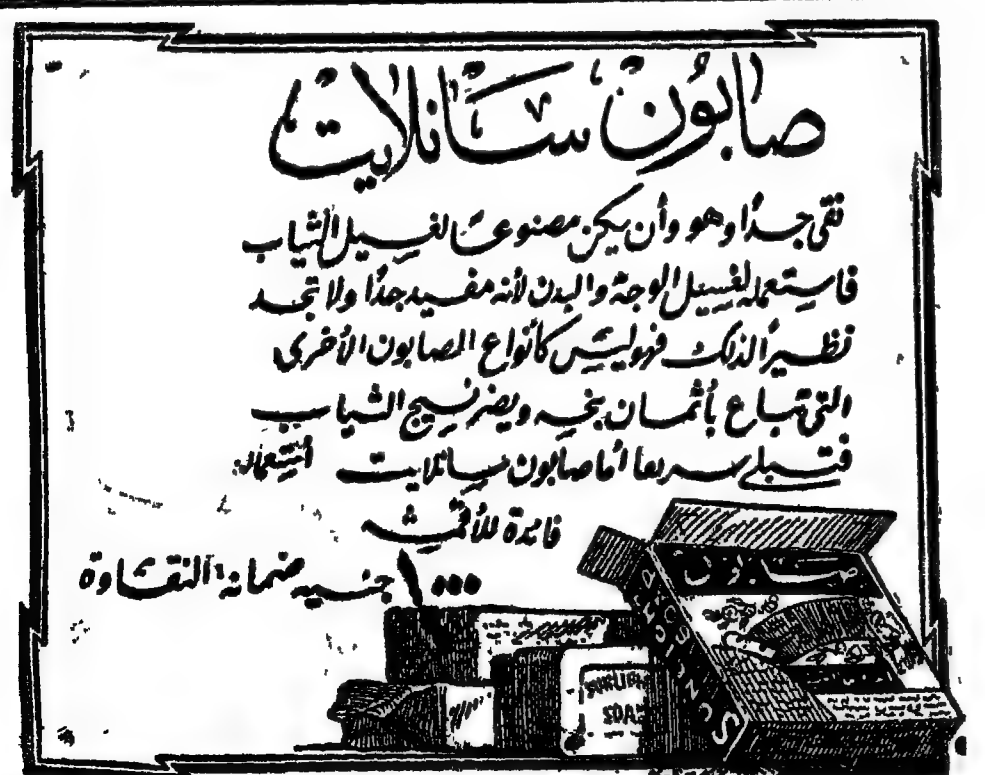 صابُون سَانلايت
نقى جدًا وهو وأن يكن مصنوعًا لغسيل الثياب
فاستعمله لغسيل الوجه والبدن لأنه مفيد جدًا ولا تجد
نظيرًا لذلك فهو ليس كأنواع الصابون الأخرى
التى تباع بأثمان بخسه ويضر نسيج الثياب
فتبلى سريعا أما صابون سانلايت أستعماله
فائدة للأقمشه
١٠٠٠ جنيه ضمانة النقاوة
صابون
SUNLIGHT
SOAP